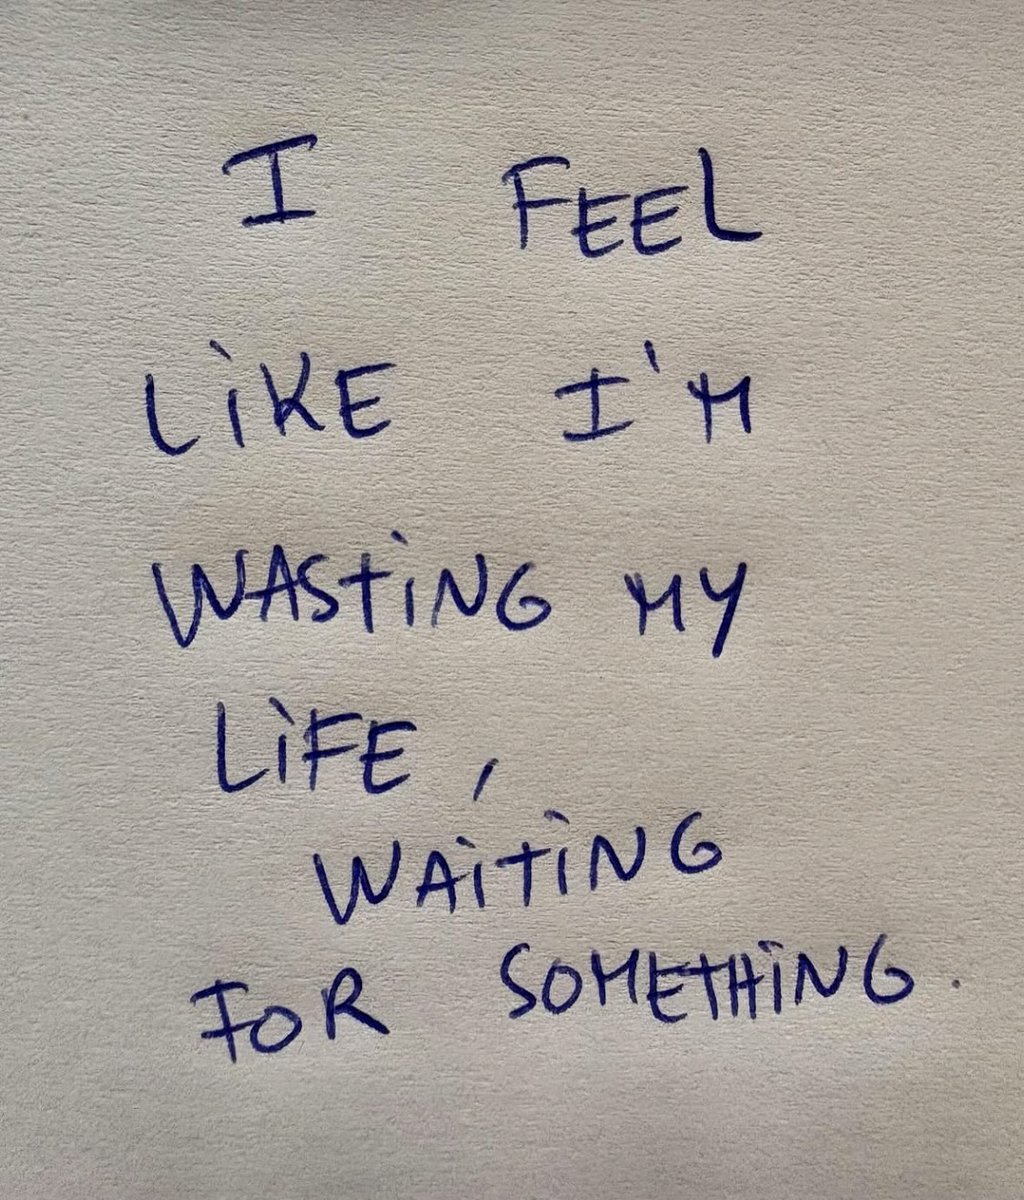 I FEEL
LiKE I'M
WASTiNG MY
LiFE,
WAiTiNG
FOR SOMETHiNG.